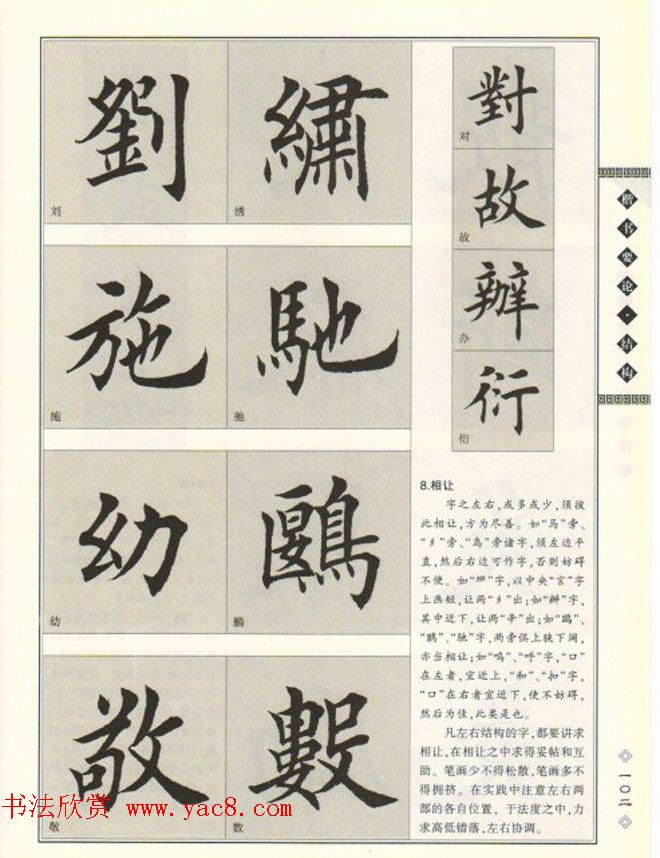 劉 繡
刘 绣
施 馳
施 驰
幼 鶠
幼
敬 數
敬 数
對
对
故
故
辦
办
衍
衍
8.相让
字之左右,或多或少,须彼
此相让,方为尽善。如“马”旁、
“纟”旁、“鸟”旁诸字,须左边平
直,然后右边可作字,否则妨碍
不便。如“䜌”字,以中央“言”字
上画短,让两“纟”出;如“辦”字,
其中近下,让两“辛”出;如“鸥”、
“鶠”、“驰”字,两旁俱上狭下阔,
亦当相让;如“呜”、“呼”字,“口”
在左者,宜近上,“和”、“扣”字,
“口”在右者宜近下,使不妨碍,
然后为佳,此类是也。
凡左右结构的字,都要讲求
相让,在相让之中求得妥帖和互
助。笔画少不得松散,笔画多不
得拥挤。在实践中注意左右两
部的各自位置,于法度之中,力
求高低错落,左右协调。
楷书要论·结构
一〇二
书法欣赏 www.yac8.com